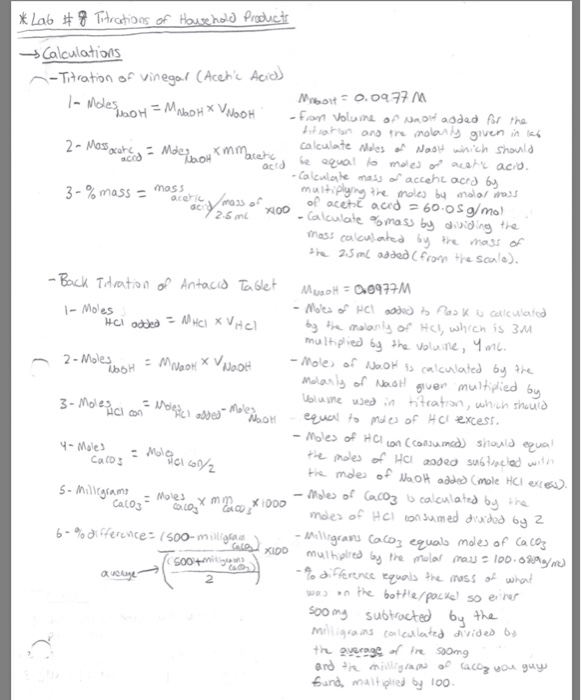 * Lab # 8 Titrations of Household Products
→ Calculations
- Titration of vinegar (Acetic Acid)
1- Moles NaOH = M NaOH × V NaOH
2- Mass acetic acid = Moles NaOH × mm acetic acid
3- % mass = mass acetic acid / mass of 2.5 mL ×100
M NaOH = 0.0977 M
- From volume of NaOH added for the
titration and the molarity given in lab
calculate moles of NaOH which should
be equal to moles of acetic acid.
- Calculate mass of acetic acid by
multiplying the moles by molar mass
of acetic acid = 60.05 g/mol
- Calculate % mass by dividing the
mass calculated by the mass of
the 2.5 mL added (from the scale).
- Back Titration of Antacid Tablet
1- Moles HCl added = M HCl × V HCl
2- Moles NaOH = M NaOH × V NaOH
3- Moles HCl con = Moles HCl added - Moles NaOH
4- Moles CaCO3 = Mole HCl con/2
5- Milligrams CaCO3 = Moles CaCO3 × mm CaCO3 × 1000
6- % difference = (500 - milligrams CaCO3) ×100
average → (500 + milligrams CaCO3) / 2
M NaOH = 0.0977 M
- Moles of HCl added to flask is calculated
by the molarity of HCl, which is 3M
multiplied by the volume, 4 mL.
- Moles of NaOH is calculated by the
Molarity of NaOH given multiplied by
Volume used in titration, which should
equal to moles of HCl excess.
- Moles of HCl con (consumed) should equal
the moles of HCl added subtracted with
the moles of NaOH added (mole HCl excess).
- Moles of CaCO3 is calculated by the
moles of HCl consumed divided by 2
- Milligrams CaCO3 equals moles of CaCO3
multiplied by the molar mass = g/mol
- % difference equals the mass of what
was on the bottle/packet so either
500mg subtracted by the
milligrams calculated divided by
the average of the 500mg
and the milligrams of CaCO3 you guys
found, multiplied by 100.